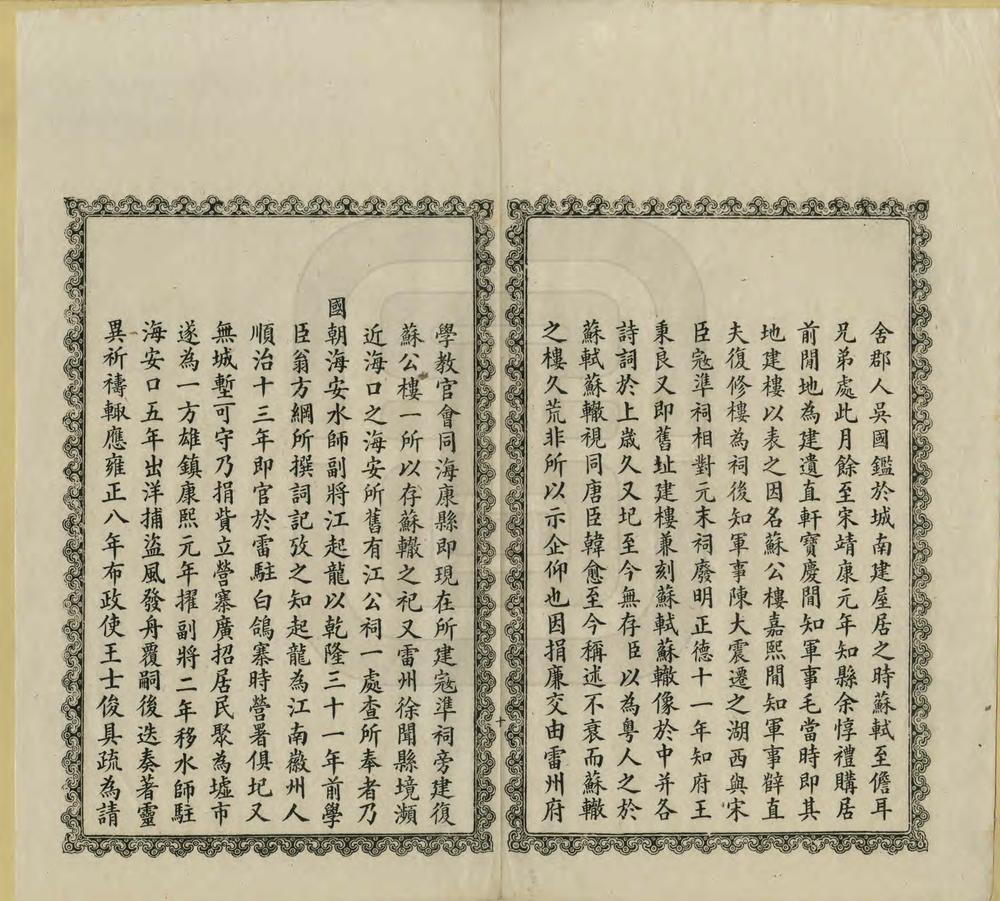 舍郡人吳國鑑於城南建屋居之時蘇軾至儋耳
兄弟處此月餘至宋靖康元年知縣余惇禮購居
前閒地為建遺直軒寶慶閒知軍事毛當時即其
地建樓以表之因名蘇公樓嘉熙閒知軍事薛直
夫復修樓為祠後知軍事陳大震遷之湖西與宋
臣寇準祠相對元末祠廢明正德十一年知府王
秉良又即舊址建樓兼刻蘇軾蘇轍像於中并各
詩詞於上歲久又圮至今無存臣以為粵人之於
蘇軾蘇轍視同唐臣韓愈至今稱述不衰而蘇轍
之樓久荒非所以示企仰也因捐廉交由雷州府
學教官會同海康縣即現在所建寇準祠旁建復
蘇公樓一所以存蘇轍之祀又雷州徐聞縣境瀕
近海口之海安所舊有江公祠一處查所奉者乃
國朝海安水師副將江起龍以乾隆三十一年前學
臣翁方綱所撰詞記攷之知起龍為江南徽州人
順治十三年即官於雷駐白鴿寨時營署俱圮又
無城塹可守乃捐貲立營寨廣招居民聚為墟市
遂為一方雄鎮康熙元年擢副將二年移水師駐
海安口五年出洋捕盜風發舟覆嗣後迭奏著靈
異祈禱輒應雍正八年布政使王士俊具疏為請
十